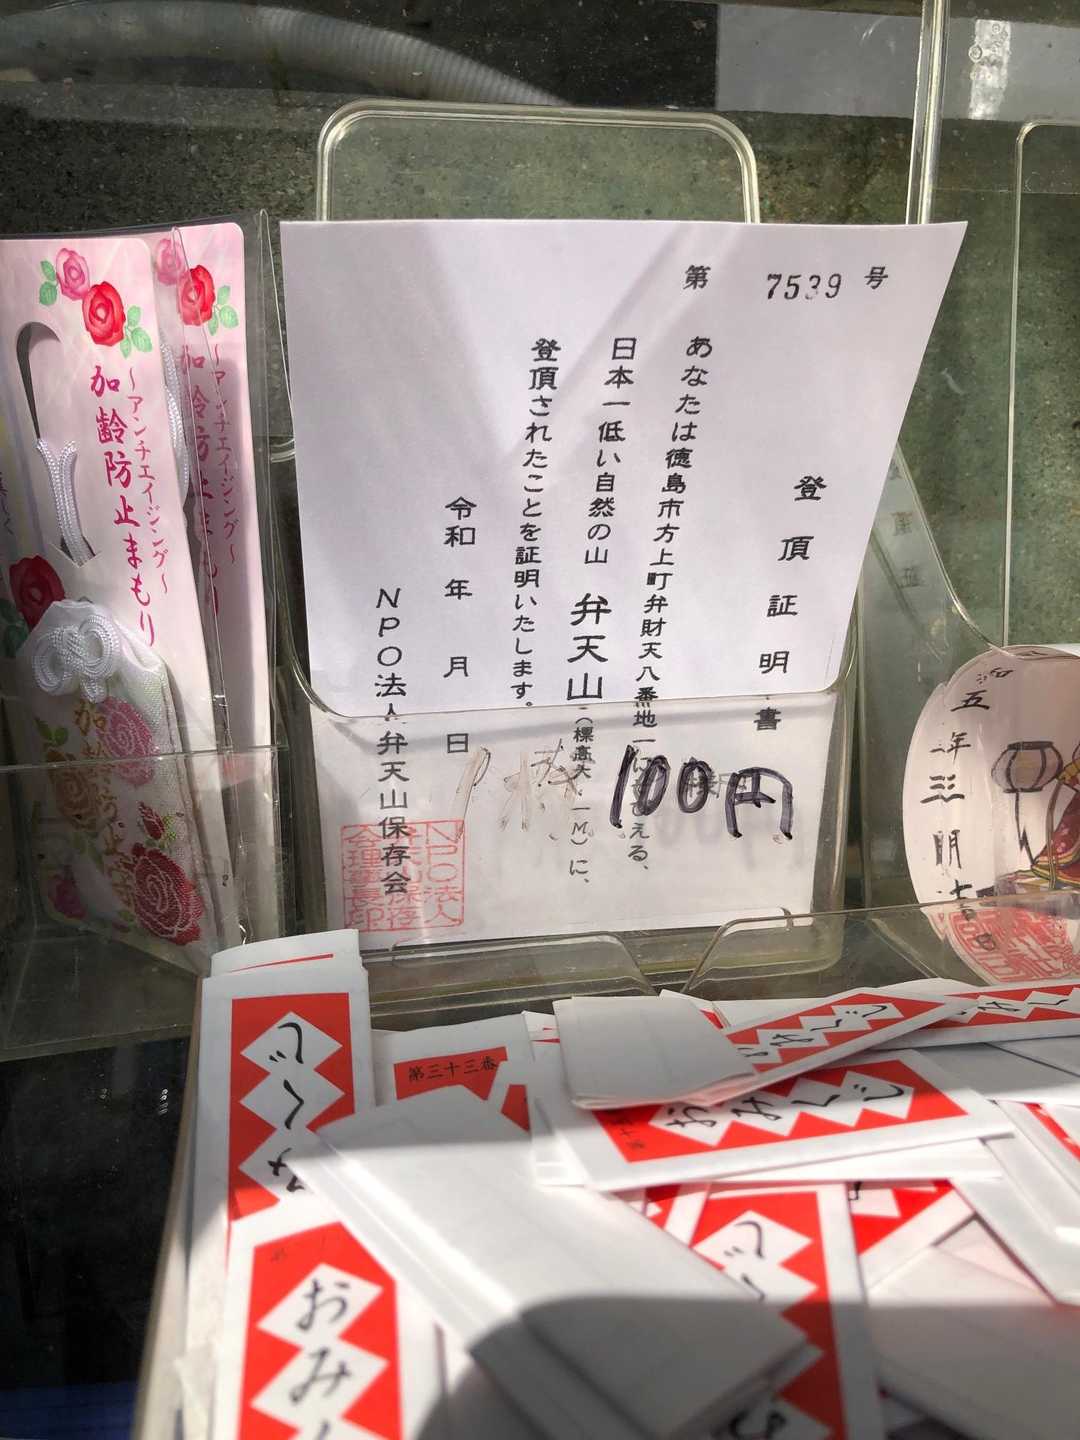 第 7539 号
登頂証明書
あなたは徳島市方上町弁財天八番地一にそびえる、
日本一低い自然の山 弁天山(標高六.一M)に、
登頂されたことを証明いたします。
令和 年 月 日
NPO法人弁天山保存会
NPO法人
弁天山保存
会理事長印
1枚 100円
~アンチエイジング~
加齢防止まもり
~アンチエイジング~
加齢防止まもり
加齢防止
五年
おみくじ
第三十三番
おみくじ
おみくじ
おみく